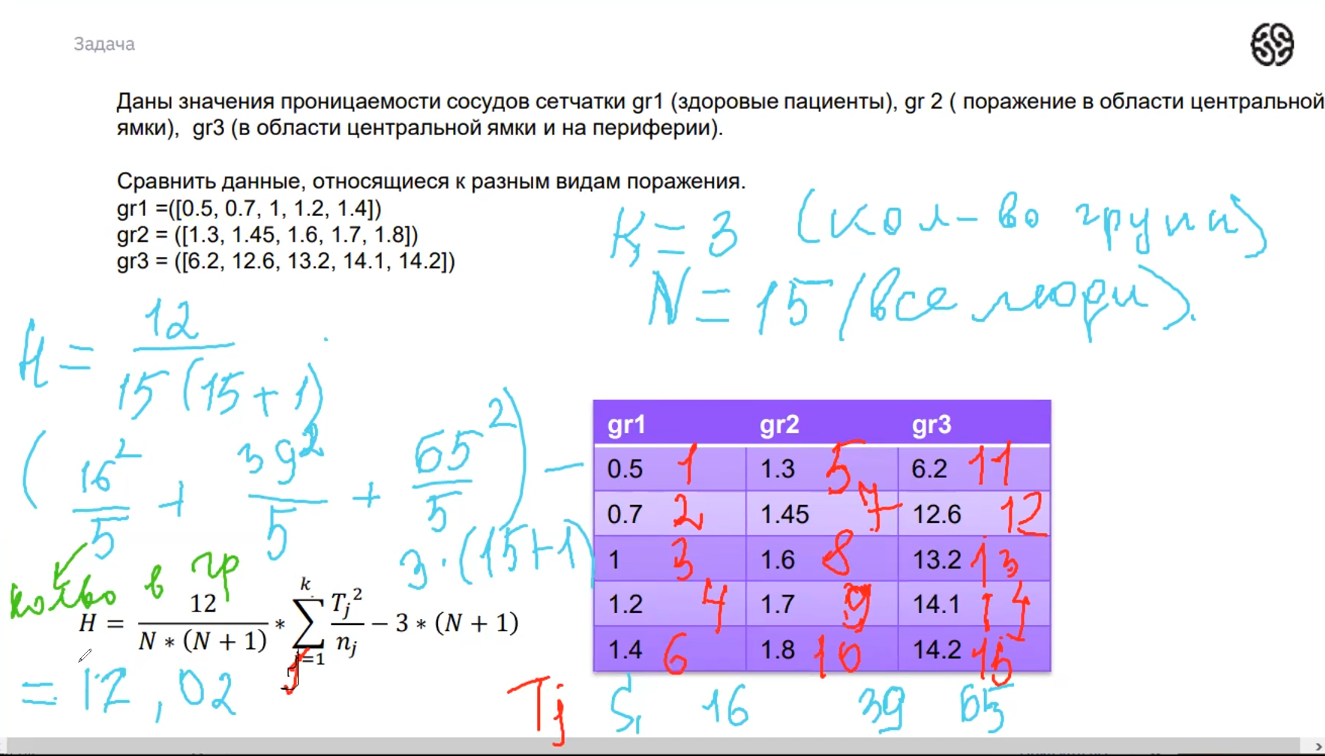 Задача
Даны значения проницаемости сосудов сетчатки gr1 (здоровые пациенты), gr 2 ( поражение в области центральной
ямки), gr3 (в области центральной ямки и на периферии).
Сравнить данные, относящиеся к разным видам поражения.
gr1 =([0.5, 0.7, 1, 1.2, 1.4])
gr2 = ([1.3, 1.45, 1.6, 1.7, 1.8])
gr3 = ([6.2, 12.6, 13.2, 14.1, 14.2])
K = 3 (кол-во групп)
N = 15 (все люди).
H = 12 / 15(15+1) ·
(16² / 5 + 39² / 5 + 65² / 5) −
3·(15+1)
кол-во в гр
H = 12 / N ∗ (N + 1) ∗ ∑ k j=1 Tj² / nj − 3 ∗ (N + 1)
= 12,02
gr1 gr2 gr3
0.5 1 1.3 5 6.2 11
0.7 2 1.45 7 12.6 12
1 3 1.6 8 13.2 13
1.2 4 1.7 9 14.1 14
1.4 6 1.8 10 14.2 15
Tj 16 39 65